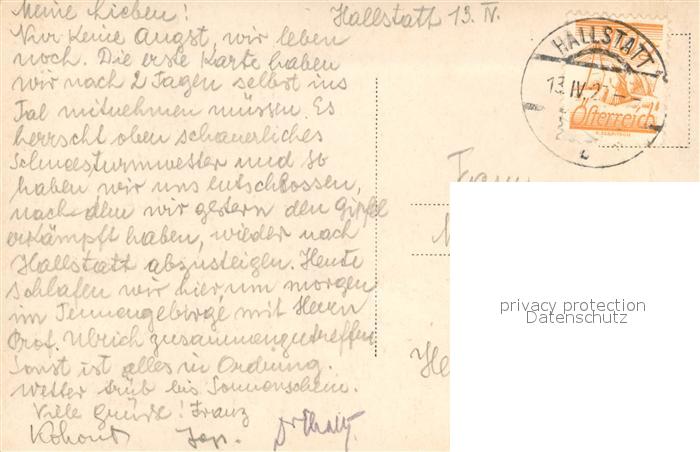 Meine Lieben!
Hallstatt 13. IV.
Nur keine Angst, wir leben
noch. Die erste Karte haben
wir nach 2 Tagen selbst ins
Tal mitnehmen müssen. Es
herrscht oben schauerliches
Schneesturmwetter und so
haben wir uns entschlossen,
nach dem wir gestern den Gipfel
erkämpft haben, wieder nach
Hallstatt abzusteigen. Heute
schlafen wir hier, um morgen
im Tennengebirge mit Herrn
Prof. Ulrich zusammenzutreffen
Sonst ist alles in Ordnung.
Wetter trüb bis Sonnenschein.
Viele Grüsse! Franz
Kohout
HALLSTATT
13. IV. 27
Österreich
privacy protection
Datenschutz